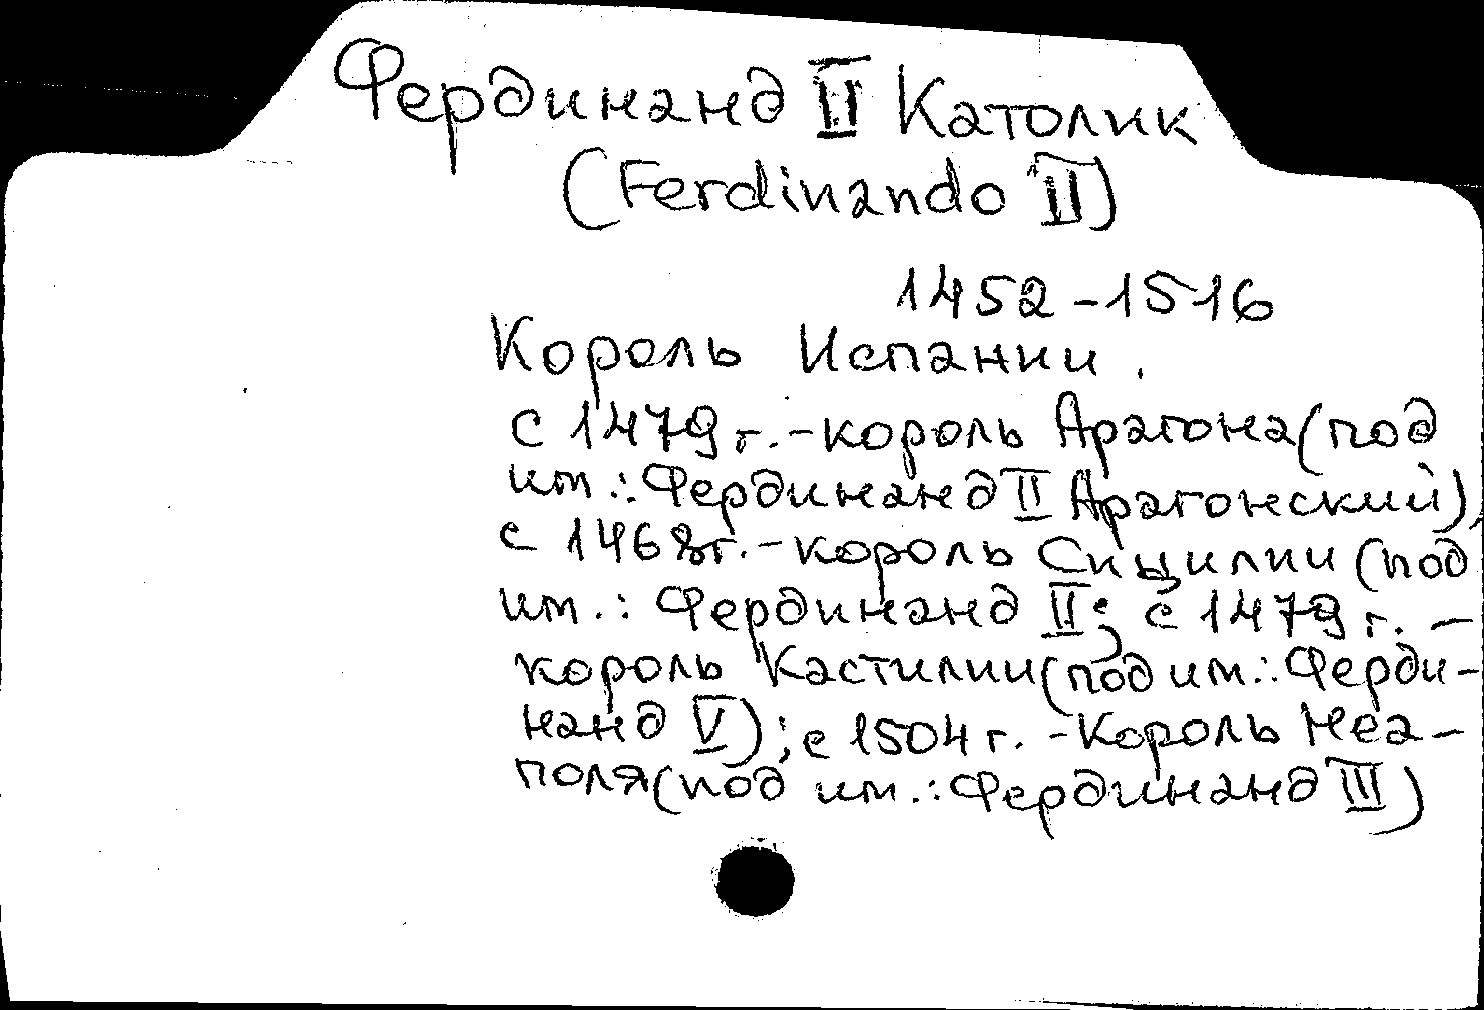 Фердинанд II Католик
(Ferdinando II)
1452-1516
Король Испании.
с 1479 г.-король Арагона(под
им.:Фердинанд II Арагонский),
с 1468г.-король Сицилии (под
им.: Фердинанд II; с 1479 г. -
король Кастилии(под им.: Ферди-
нанд V); с 1504 г. -Король Неа-
поля(под им.:Фердинанд III)